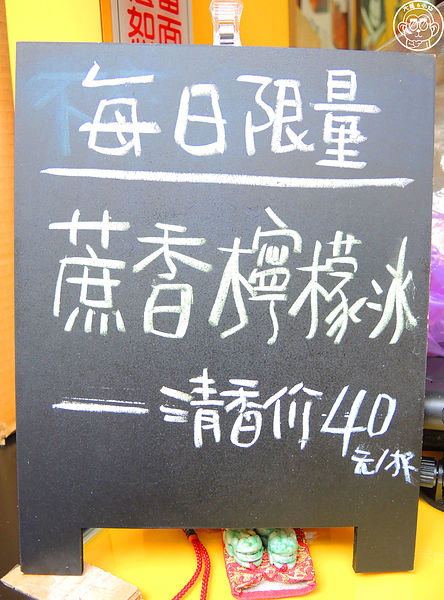 每日限量
蔗香檸檬冰
—清香价40
元/杯